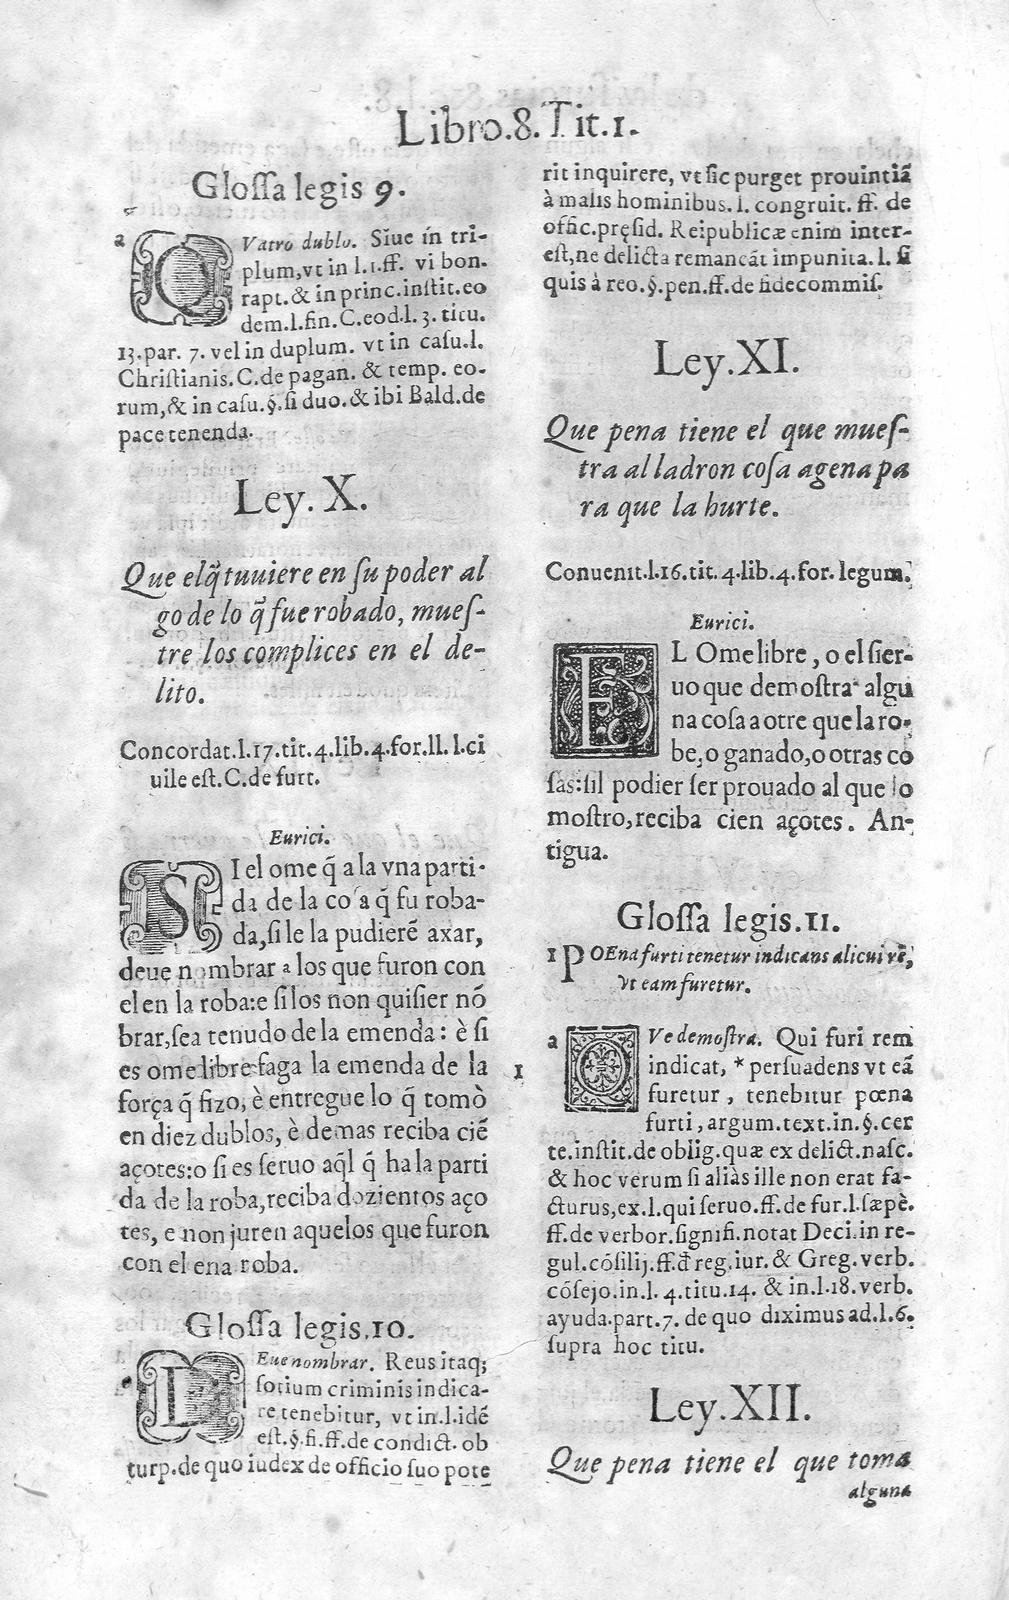 Libro.8.Tit.1.
Glossa legis 9.
a QVatro dublo. Siue in tri-
plum,vt in l.1.ff. vi bon.
rapt.& in princ.instit.eo
dem.l.fin.C.eod.l. 3. titu.
13.par. 7. vel in duplum. vt in casu.l.
Christianis.C.de pagan. & temp. eo-
rum,& in casu.§.si duo.& ibi Bald.de
pace tenenda.
Ley. X.
Que elq̃ tuuiere en su poder al
go de lo q̃ fue robado, mues-
tre los complices en el de-
lito.
Concordat.l.17.tit.4.lib.4.for.ll. l.ci
uile est.C.de furt.
Eurici.
SI el ome q̃ a la vna parti-
da de la cosa q̃ fu roba-
da,si le la pudierē axar,
deue nombrar a los que furon con
el en la roba:e si los non quisier nō
brar,sea tenudo de la emenda: è si
es ome libre faga la emenda de la
força q̃ fizo, è entregue lo q̃ tomò
en diez dublos, è demas reciba ciē
açotes:o si es seruo aq̃l q̃ ha la parti
da de la roba,reciba dozientos aço
tes, e non juren aquelos que furon
con el ena roba.
Glossa legis.10.
DEue nombrar. Reus itaq;
sotium criminis indica-
re tenebitur, vt in.l.idē
est.§.fi.ff.de condict. ob
turp.de quo iudex de officio suo pote
rit inquirere, vt sic purget prouintiā
à malis hominibus. l. congruit. ff. de
offic.pręsid. Reipublicæ enim inter-
est,ne delicta remancāt impunita. l. si
quis à reo. §.pen.ff.de fidecommis.
Ley.XI.
Que pena tiene el que mues-
tra al ladron cosa agena pa
ra que la hurte.
Conuenit.l.16.tit.4.lib.4.for.legum.
Eurici.
EL Ome libre, o el sier-
uo que demostra a algu
na cosa a otre que la ro-
be,o ganado,o otras co
sas:sil podier ser prouado al que lo
mostro,reciba cien açotes. An-
tigua.
Glossa legis.11.
1 POEna furti tenetur indicans alicui rē,
vt eam furetur.
a QVe demostra. Qui furi rem
1 indicat, * persuadens vt eā
furetur, tenebitur pœna
furti, argum.text.in.§.cer
te.instit.de oblig.quæ ex delict.nasc.
& hoc verum si aliàs ille non erat fa-
cturus,ex.l.qui seruo.ff.de fur.l.sæpè.
ff.de verbor.signifi.notat Deci.in re-
gul.cōsilij.ff.đ reg.iur. & Greg.verb.
cōsejo.in.l. 4.titu.14. & in.l.18.verb.
ayuda.part.7. de quo diximus ad.l.6.
supra hoc titu.
Ley.XII.
Que pena tiene el que toma
alguna